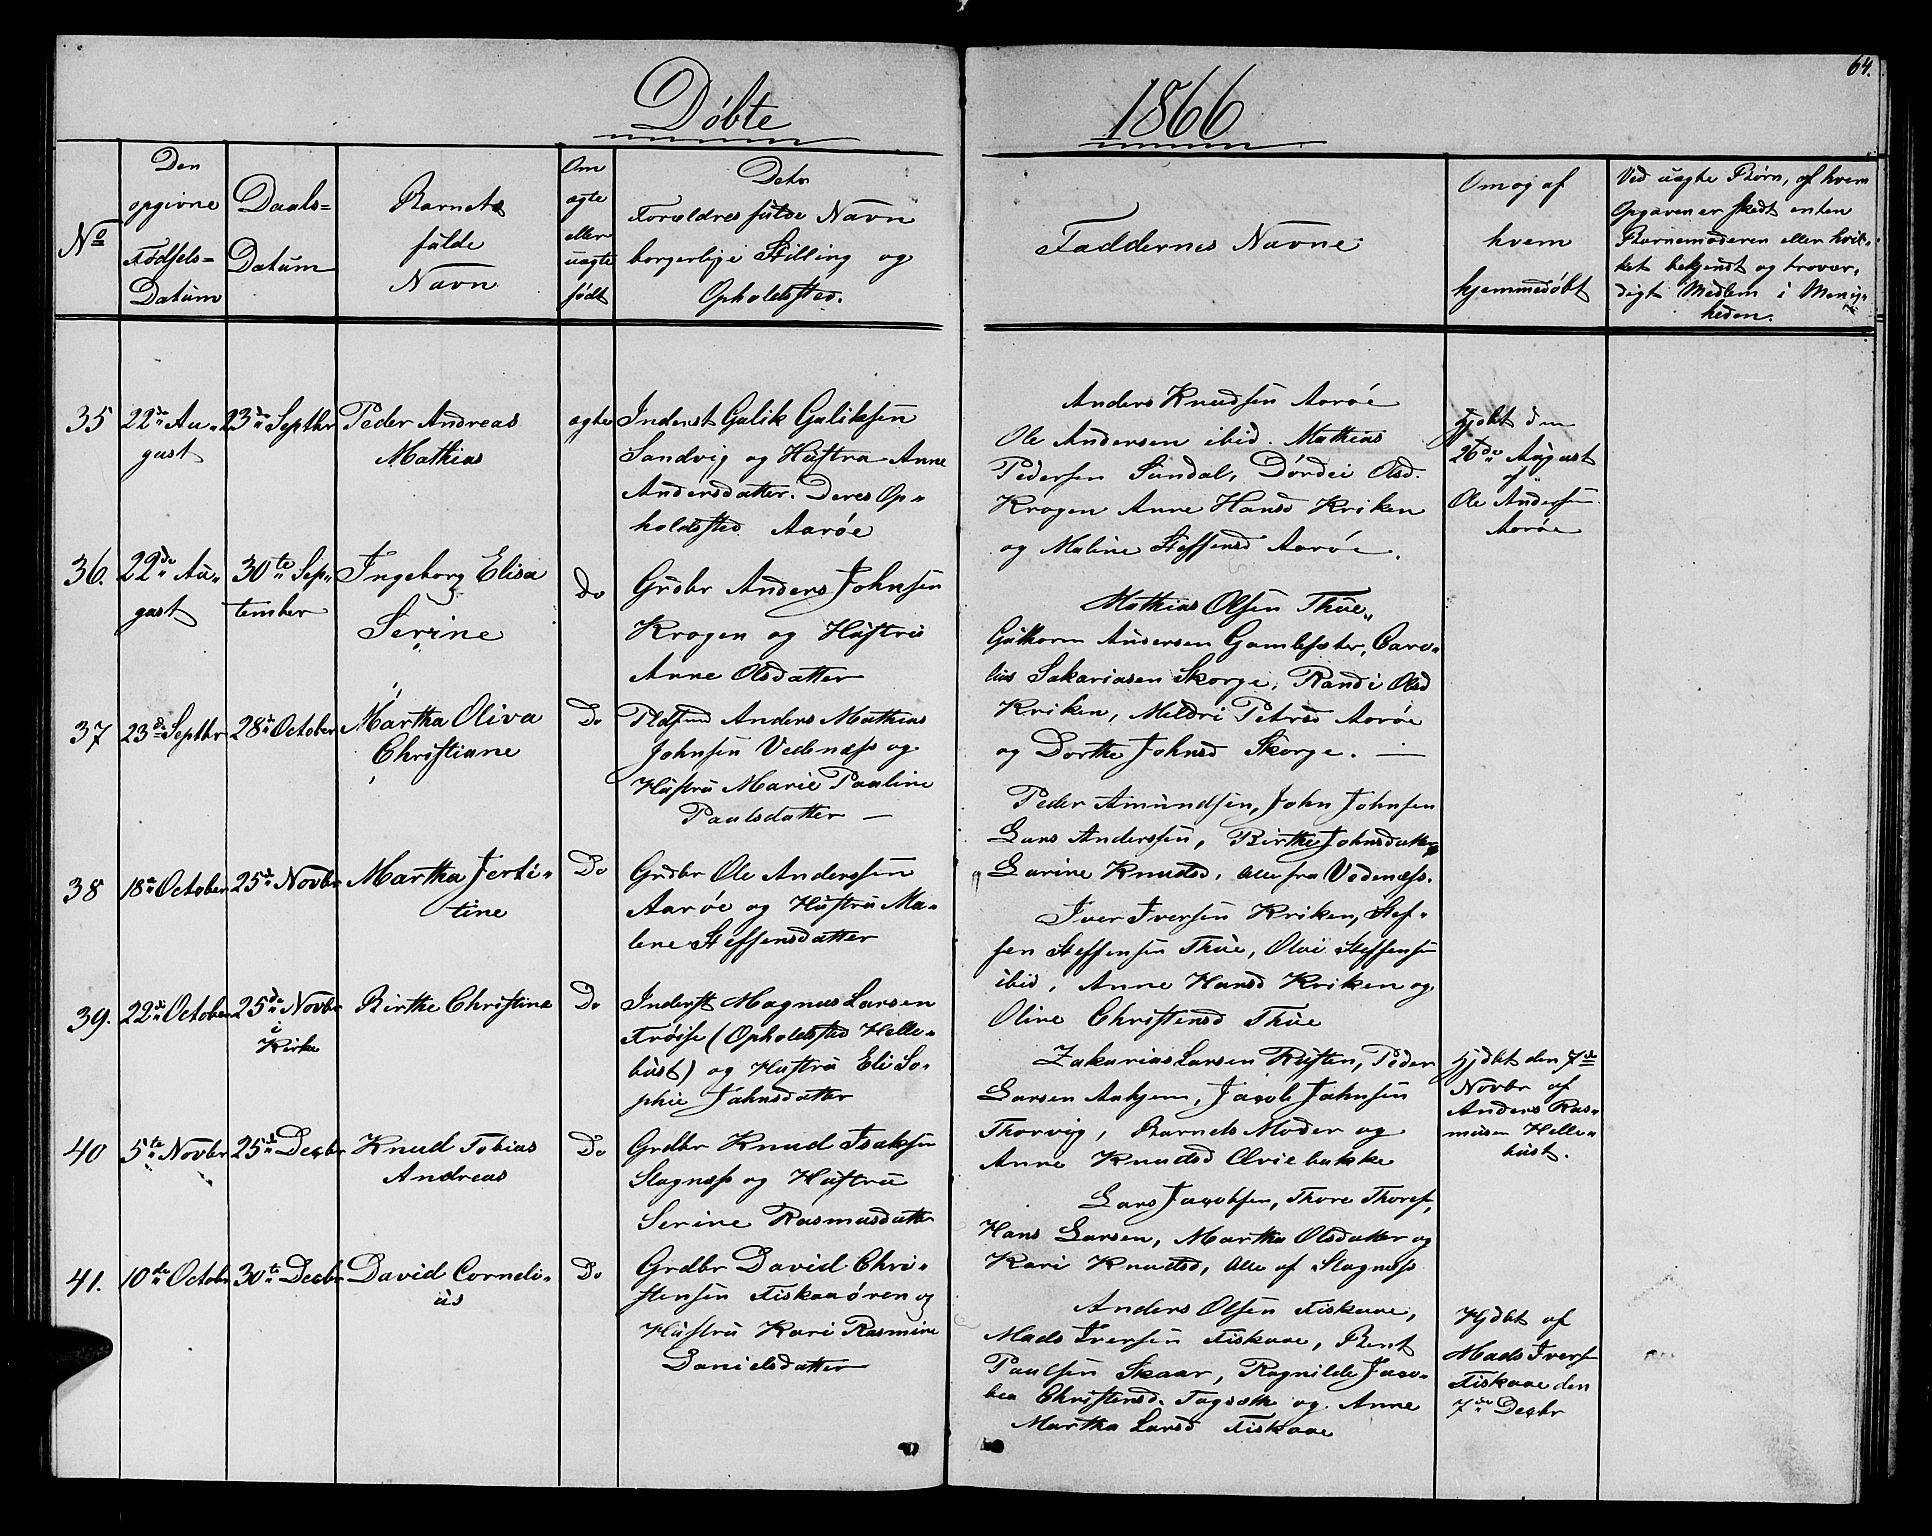 Døbte
1866
64.
No
Den
opgivne
Fødsels-
Datum
Daabs-
Datum
Barnets
fulde
Navn
Om
ægte
eller
uægte
født
Dets
Forældres fulde Navn
borgerlige Stilling og
Opholdsted.
Faddernes Navne
Om og af
hvem
hjemmedøbt
Ved uægte Børn, af hvem
Opgaven er skedt enten
Barnemoderen eller hvil-
ket bekjendt og trovær-
digt Medlem i Menig-
heden.
35
22de Au-
gust
23de Septbr
Peder Andreas
Mathias
ægte
Inderst Gulik Guliksen
Sandvig og Hustru Anne
Andersdatter. Deres Op-
holdsted Aarøe
Anders Knudsen Aarøe
Ole Andersen ibid. Mathias
Pedersen Sundal, Dordei Olsd.
Krogen Anne Hansd Kriken
og Maline Steffensd Aarøe.
Hjdbt den
26de August
af
Ole Andersen
Aarøe
36.
22de Au-
gust
30te Sep-
tember
Ingeborg Elisa
Serine
Do
Grdbr Anders Johnsen
Krogen og Hustru
Anne Olsdatter
Mathias Olsen Thue,
Guthorm Andersen Gamlesæter, Caro-
lius Sakariasen Skorge, Randi Olsd
Kriken, Meldri Petersd Aarøe
og Dorthe Johnsd Skorge. —
37
23de Septbr
28de October
Martha Oliva
Christiane
Do
Pladsmd Anders Mathias
Johnsen Vedenæss og
Hustru Marie Pauline
Paulsdatter —
Peder Amundsen, John Johnsen
Lars Anderssen, Birthe Johnsdatter
Larine Knudsd, Alle fra Vedenæss.
38
18de October
25de Novbr
Martha Jerti-
tine
Do
Grdbr Ole Anderssen
Aarøe og Hustru Ma-
lene Steffensdatter
Iver Iversen Kriken, Stef-
fen Steffensen Thue, Olai Steffensen
ibid, Anne Hansd Kriken og
Oline Christensd Thue
39.
22de October
25de Novbr
i
Kirke
Birthe Christine
Do
Inderst Magnus Larsen
Frøise (Opholdsted Helle-
bust) og Hustru Eli So-
phie Jahnsdatter
Zakarias Larsen Rusten, Peder
Larsen Aahjem, Jacob Jahnsen
Thorvig, Barnets Moder og
Anne Knudsd Øviebakke
Hjdbt den 7de
Novbr af
Anders Ras-
musen Helle-
bust.
40
5te Novbr
25de Decbr
Knud Tobias
Andreas
Do
Grdbr Knud Isaksen
Slagnæss og Hustru
Serine Rasmusdatter
Lars Jacobsen, Thore Thores,
Hans Larsen, Martha Olsdatter og
Kari Knudsd, Alle af Slagnæss
41.
10de Octobr
30te Decbr
David Corneli-
us
Do
Grdbr David Chri-
stensen Fiskaaøren og
Hustru Kari Rasmine
Danielsdatter
Anders Olsen Fiskaae,
Mads Iversen Fiskaae, Bent
Paulsen Skaar, Ragnilde Jaco-
bea Christensd. Tagsæth og Anne
Martha Larsd Fiskaae
Hjdbt af
Mads Iversen
Fiskaae den
7de Decbr